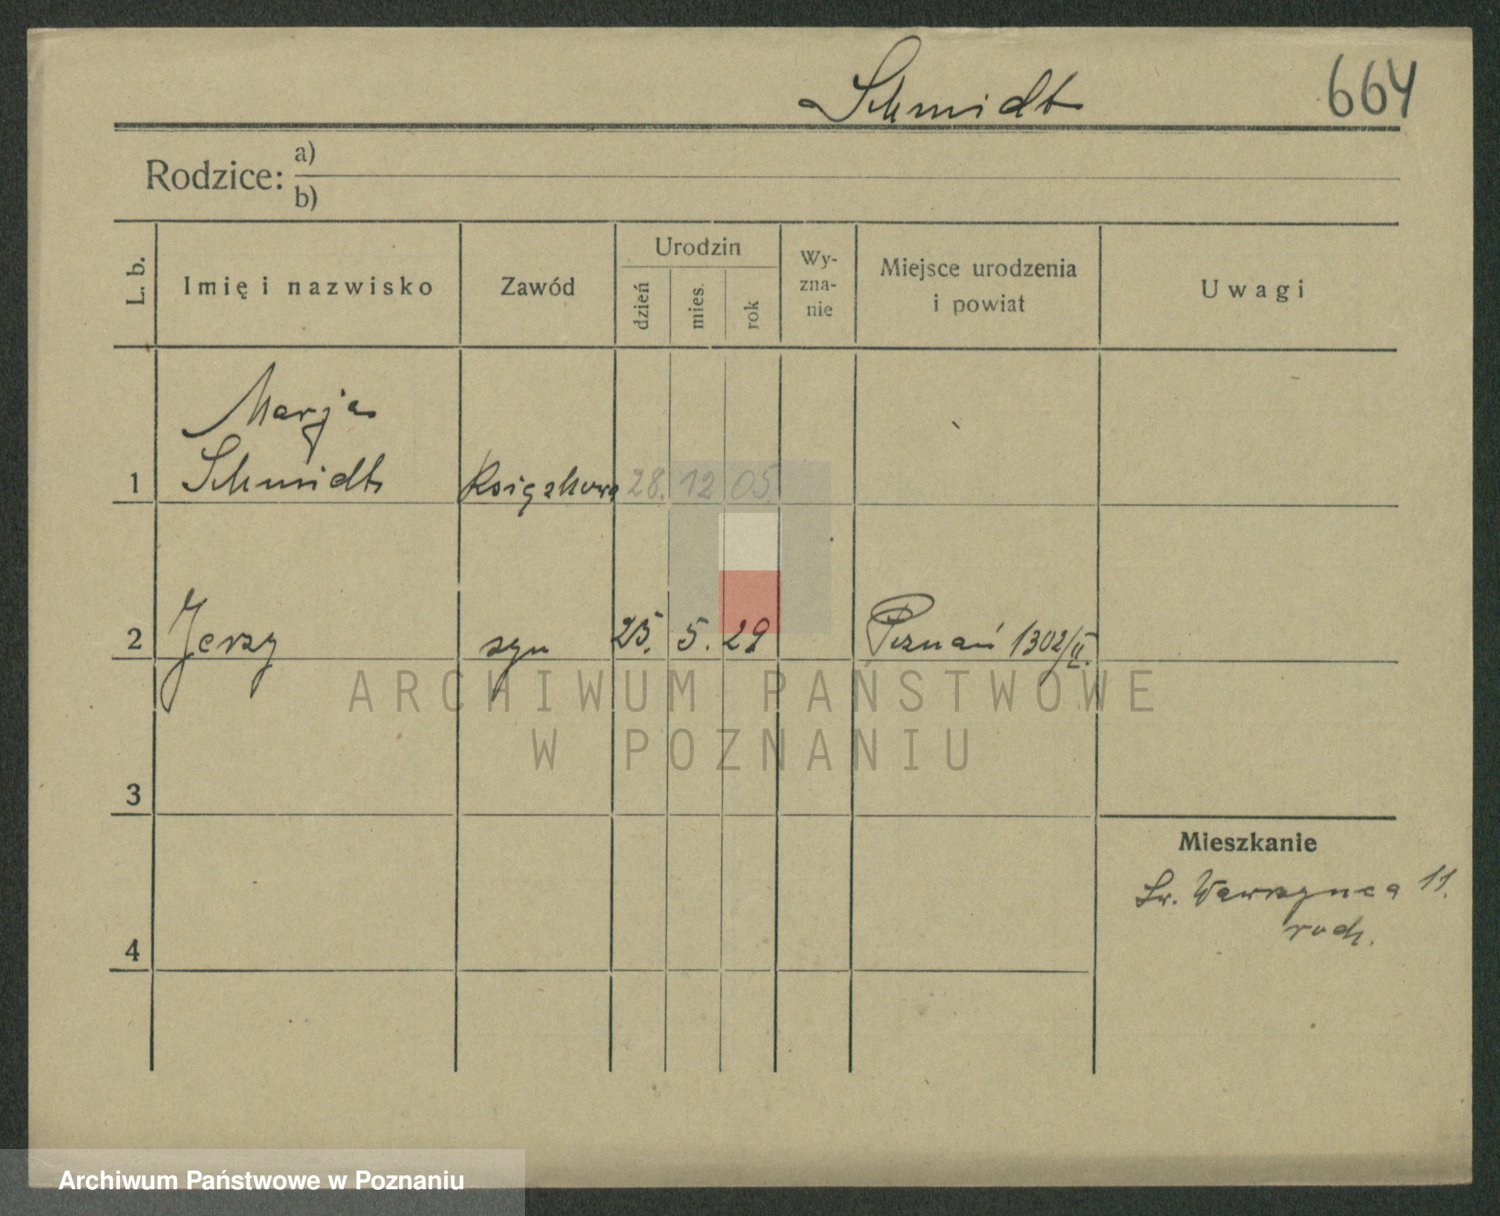 Schmidt 664
Rodzice: a)
b)
L. b. Imię i nazwisko Zawód Urodzin dzień mies. rok Wy-
zna-
nie Miejsce urodzenia
i powiat Uwagi
Marja
1 Schmidt Książkowa 28. 12 05.
2 Jerzy syn 25. 5. 29 Poznań 1302/II.
ARCHIWUM PAŃSTWOWE
W POZNANIU
3
Mieszkanie
Św. Wawrzyńca 11.
4
Archiwum Państwowe w Poznaniu